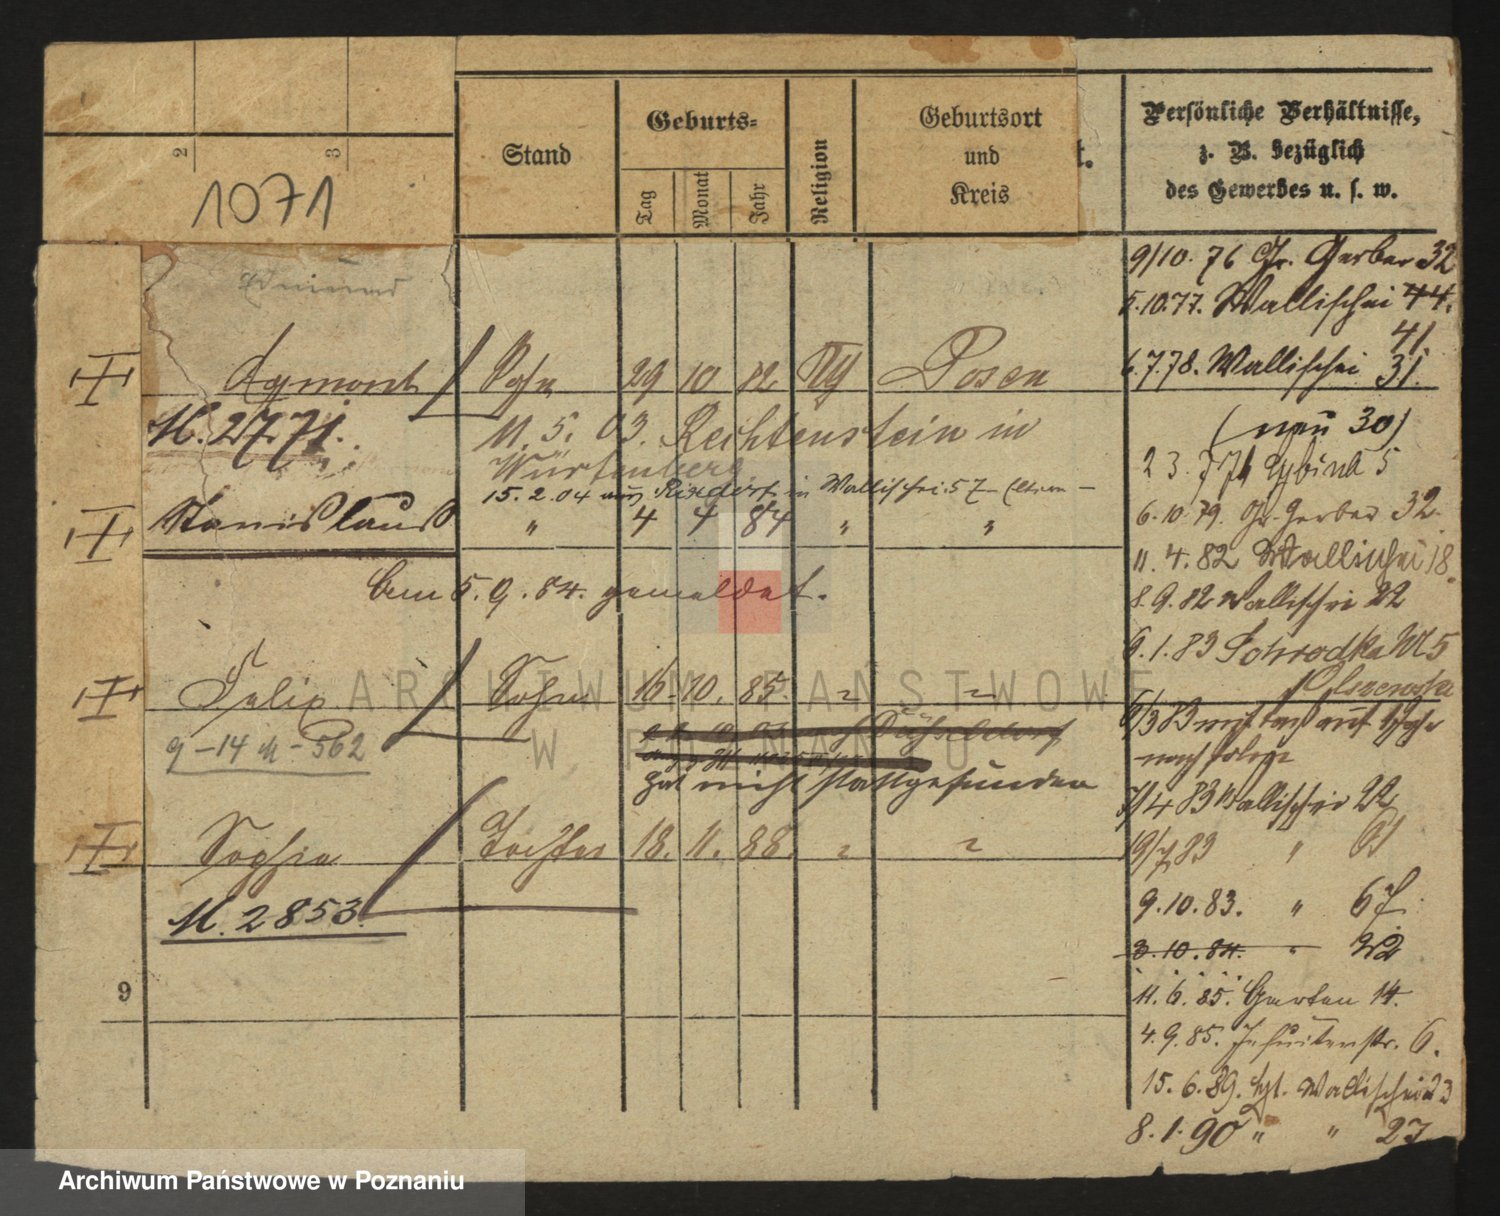 2 3
1071
Stand
Geburts=
Tag Monat Jahr
Religion
Geburtsort
und
Kreis
t.
Persönliche Verhältnisse,
z. B. bezüglich
des Gewerbes u. s. w.
Edmund
Egmont Sohn 29 10 82 Posen
M. 2771.
11. 5. 03. Rechtenstein in
Würtemberg
15. 2. 04 aus Rixdorf in Wallischei 57 Eltern –
Stanislaus " 4 4 84 " "
Am 5. 9. 84. gemeldet.
Felix Sohn 16. 10. 85. " "
9 – 14 M – 562
Düsseldorf
hat nicht stattgefunden
Sophia Tochter 18. 11. 88. " "
M. 2853.
9
9/10. 76 Gr. Gerber 32
5.10.77. Wallischei 44.
41.
6.7.78. Wallischei 31.
(neu 30)
6. 10. 79. Gr. Gerber 32.
11. 4. 82 Wallischei 18.
8. 9. 82 Wallischei 22
6. 1. 83 Schrodka M 5
6/3 83
nach
7/4 83 Wallischei 22
19/7 83 "
9. 10. 83. " 67
3. 10. 84. "
11. 6. 85. Garten 14.
4. 9. 85. Jesuitenstr. 6.
15. 6. 89. Wallischei 23
8. 1. 90 " " 27
ARCHIWUM PAŃSTWOWE
W POZNANIU
Archiwum Państwowe w Poznaniu